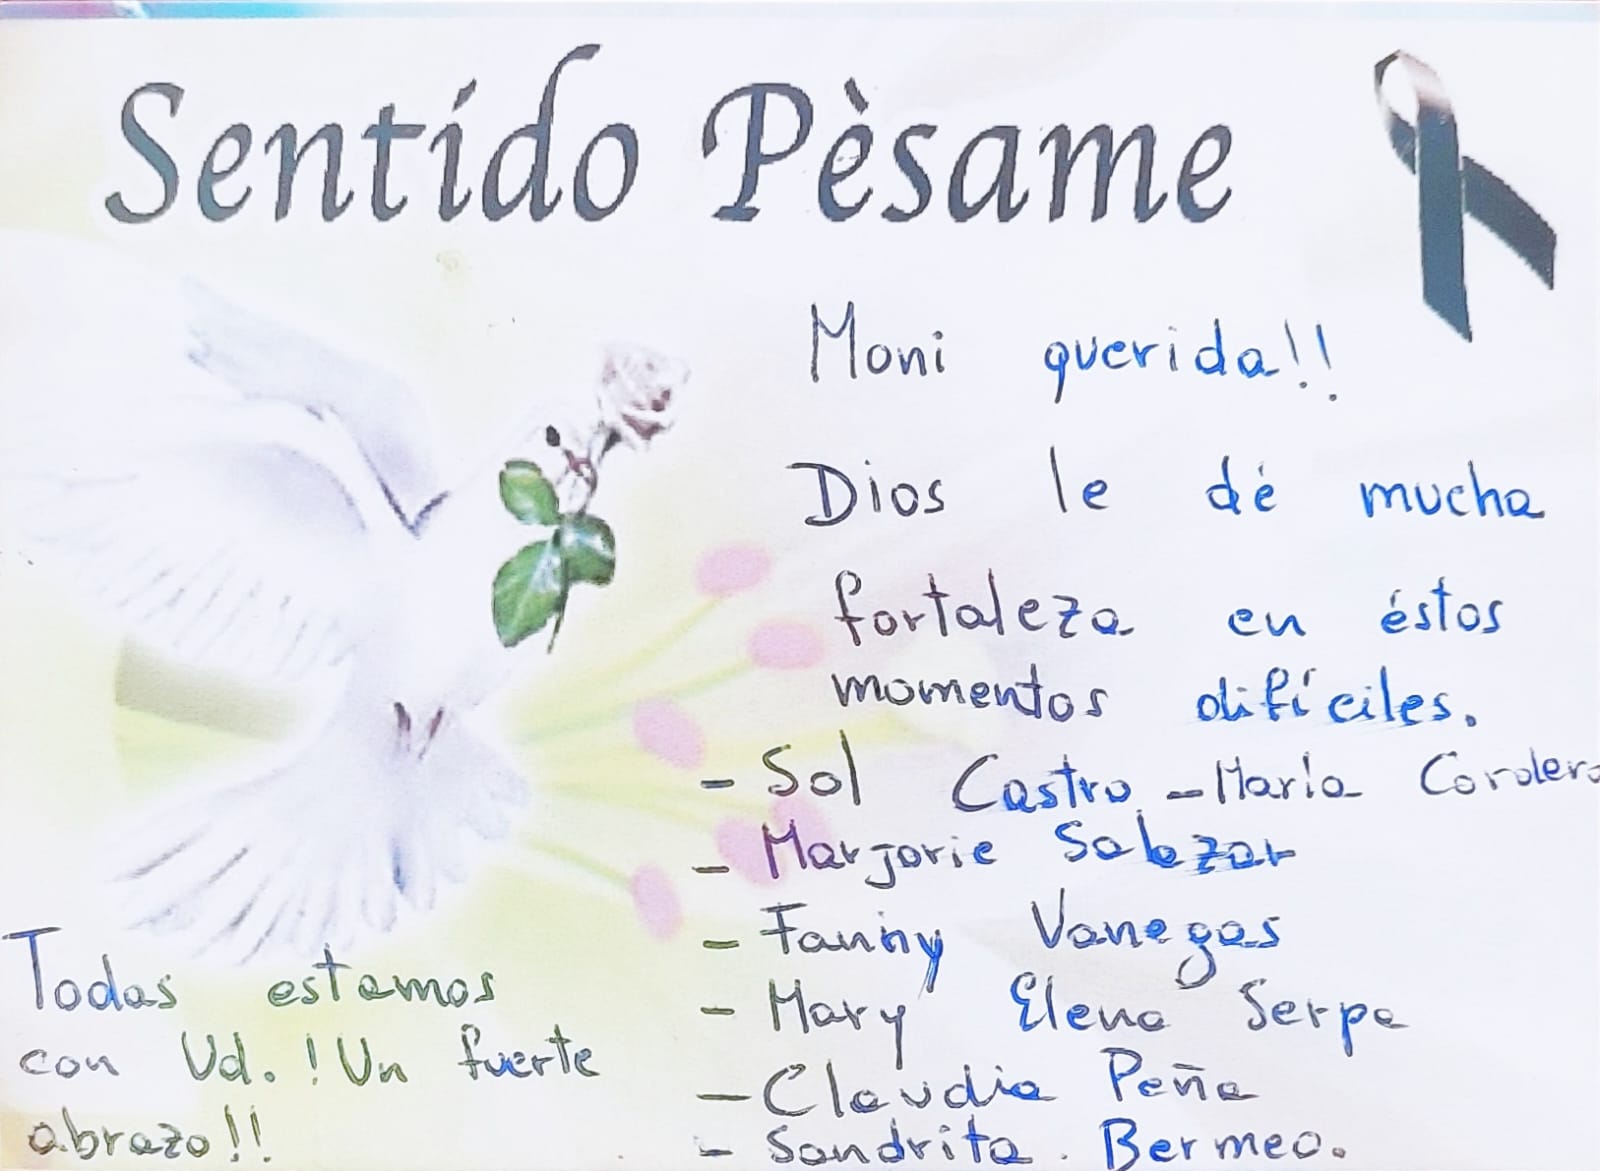 Sentído Pèsame
Moni querida!!
Dios le dé mucha
fortaleza en éstos
momentos difíciles.
- Sol Castro - María Cordero
- Marjorie Salazar
- Fanny Vanegas
- Mary Elena Serpa
- Claudia Peña
- Sandrita. Bermeo.
Todas estamos
con Ud. ! Un fuerte
abrazo!!